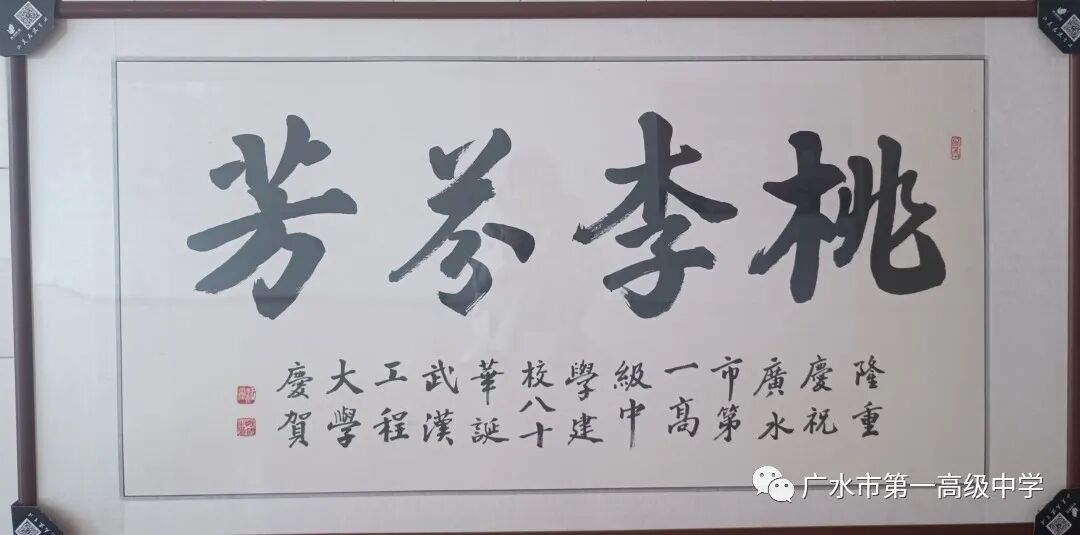 桃李芬芳
隆重
慶祝
廣水
市第
一高
級中
學建
校八十
華誕
武漢
工程
大學
慶賀
广水市第一高级中学